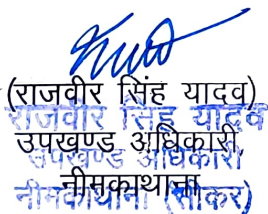 (राजवीर सिंह यादव)
राजवीर सिंह यादव
उपखण्ड अधिकारी,
उपखण्ड अधिकारी
नीमकाथाना
नीमकाथाना (सीकर)